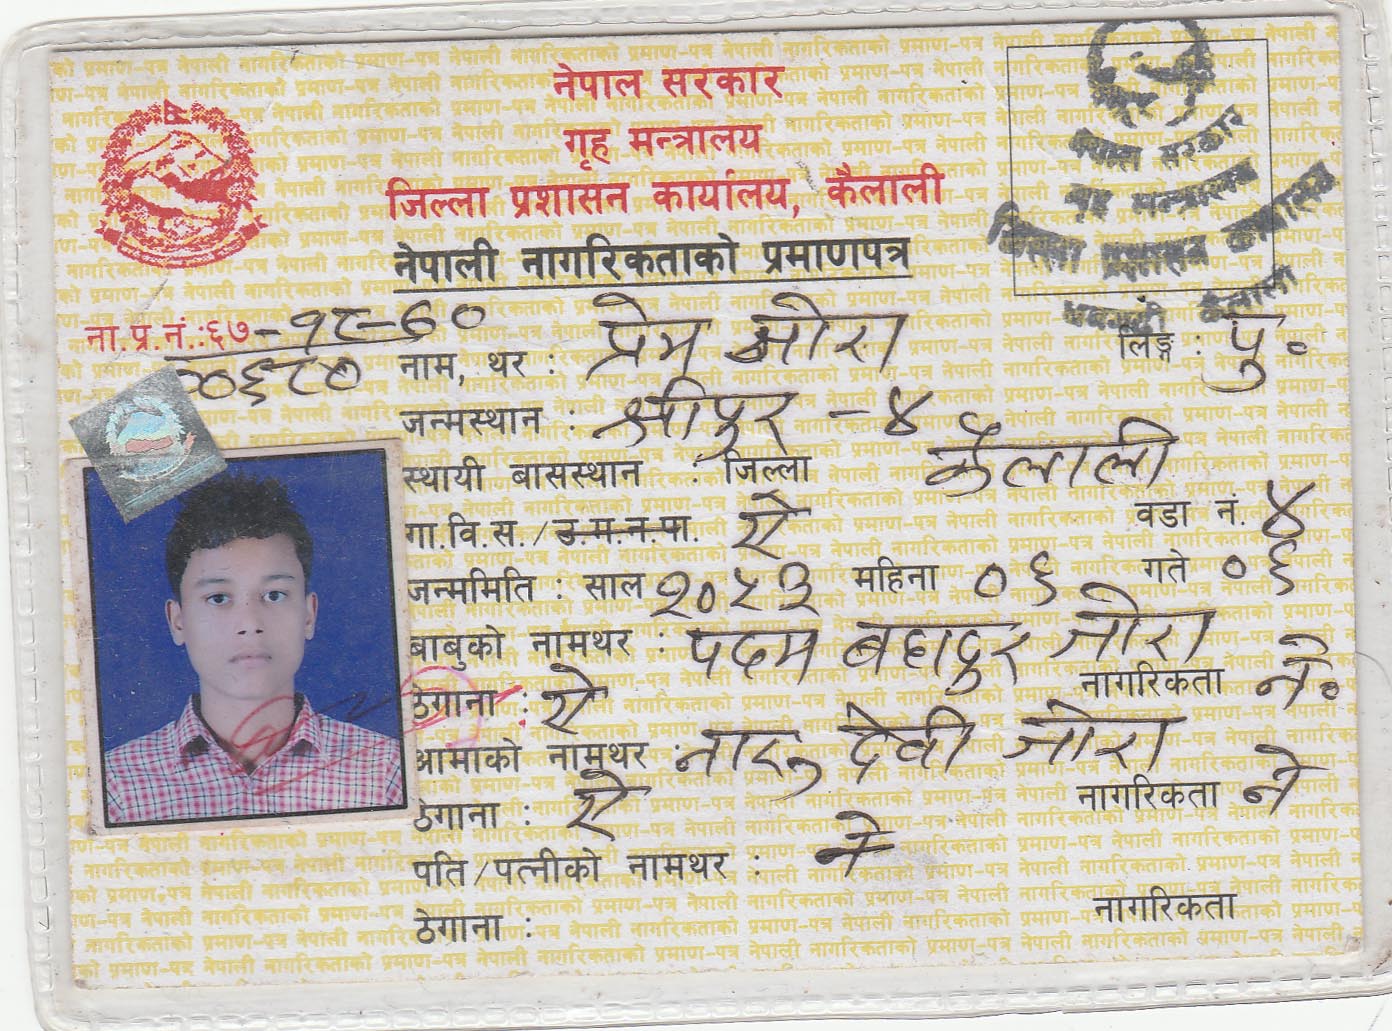 नेपाल सरकार
गृह मन्त्रालय
जिल्ला प्रशासन कार्यालय, कैलाली
नेपाली नागरिकताको प्रमाणपत्र
नेपाल सरकार
गृह मन्त्रालय
जिल्ला प्रशासन कार्यालय
कैलाली
ना.प्र.नं.:६७-१८-७०
नाम, थर : प्रेम ओरा लिङ्ग : पु.
जन्मस्थान : श्रीपुर - ४
स्थायी बासस्थान : जिल्ला कैलाली
गा.वि.स./उ.म.न.पा. ऐ वडा नं. ४
जन्ममिति : साल २०५३ महिना ०६ गते ०६
बाबुको नामथर : पदम बहादुर ओरा
ठेगाना : ऐ नागरिकता ने.
आमाको नामथर : देवी ओरा
ठेगाना : ऐ नागरिकता ने
पति/पत्नीको नामथर :
ठेगाना : नागरिकता